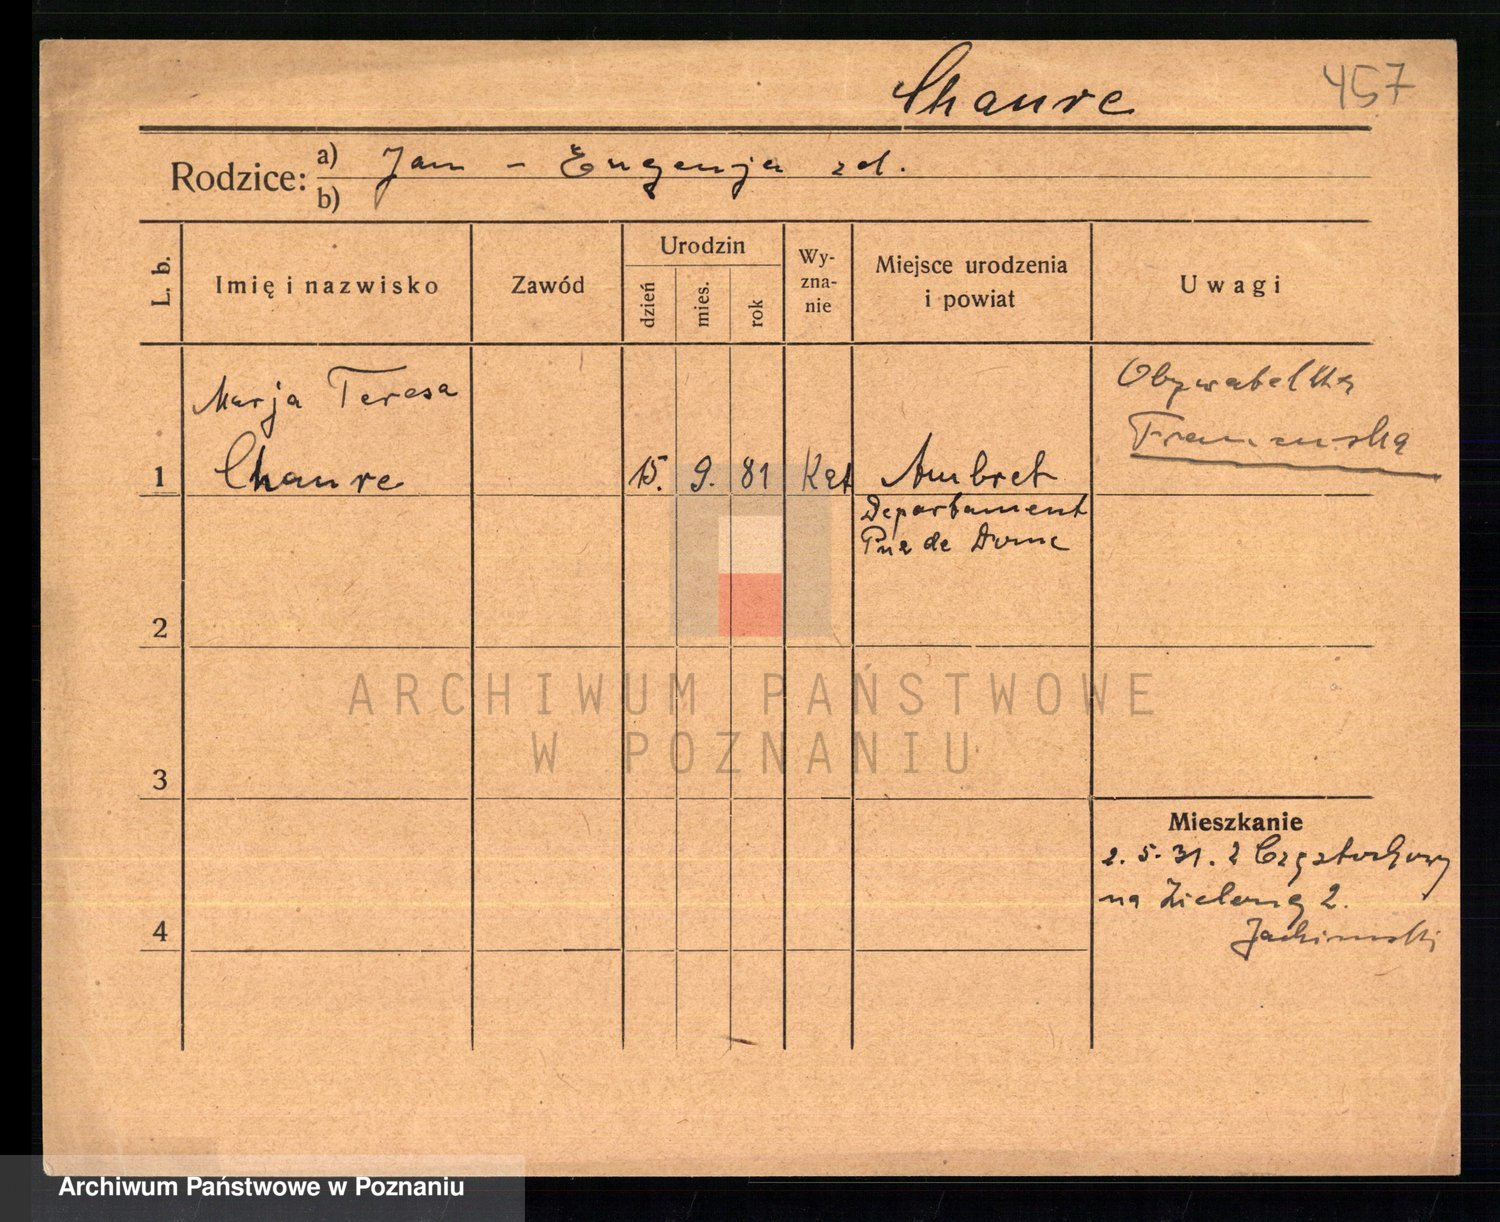 Chaure 457
Rodzice: a) Jan - Eugenja zd.
b)
L. b. Imię i nazwisko Zawód Urodzin dzień mies. rok Wy-zna-nie Miejsce urodzenia i powiat Uwagi
Marja Teresa Obywatelka
Francuska
1 Chaure 15. 9. 81 Kat Ambret
Departament
de
2
ARCHIWUM PAŃSTWOWE
W POZNANIU
3
Mieszkanie
2. 5. 31. z Częstochowy
na Zieloną 2.
4
Archiwum Państwowe w Poznaniu